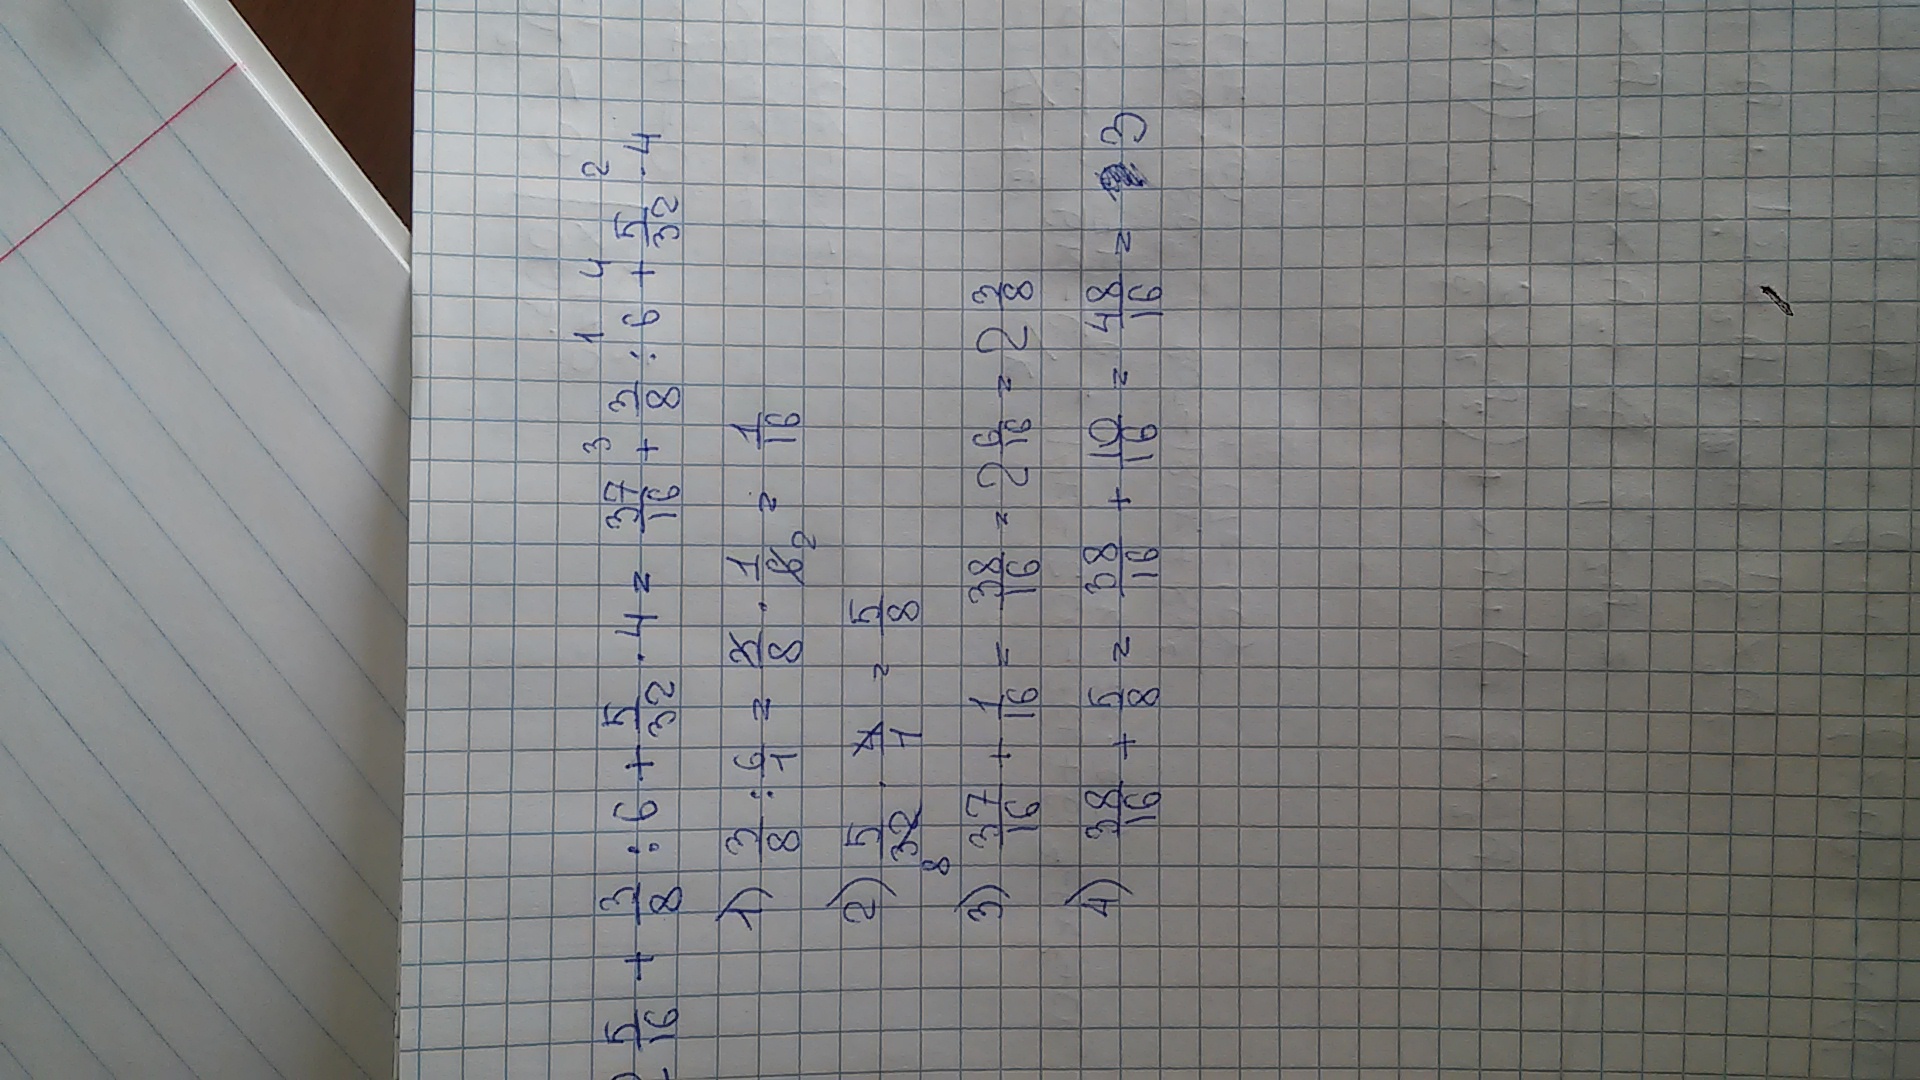 5/16 + 3/8 : 6 + 5/32 · 4 = 37/16 +³ 3/8 :¹ 6 +⁴ 5/32 ·² 4
1) 3/8 : 6/1 = 3/8 · 1/6 2 = 1/16
2) 5/32 8 · 4/1 = 5/8
3) 37/16 + 1/16 = 38/16 = 2 6/16 = 2 3/8
4) 38/16 + 5/8 = 38/16 + 10/16 = 48/16 = 3